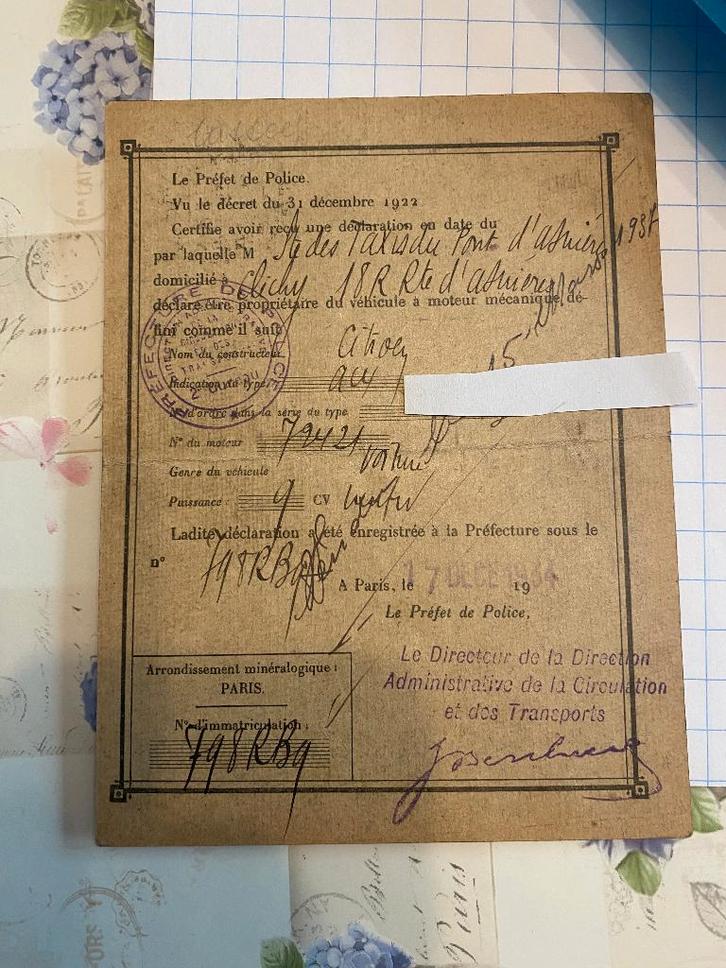 Le Préfet de Police.
Vu le décret du 31 décembre 1922
Certifie avoir reçu une déclaration en date du
par laquelle M Sté des Taxis du Pont d'Asnières
domicilié à Clichy 18 R Rte d'Asnières
déclare être propriétaire du véhicule à moteur mécanique dé-
fini comme il suit
Nom du constructeur Citroen
Indication du type
N° d'ordre dans la série du type
N° du moteur 72421
Genre du véhicule voiture
Puissance : 9 CV
Ladite déclaration a été enregistrée à la Préfecture sous le
n° 798RB9
A Paris, le 17 DECE 1934 19
Le Préfet de Police,
Le Directeur de la Direction
Administrative de la Circulation
et des Transports
Arrondissement minéralogique :
PARIS.
N° d'immatriculation :
798RB9
PRÉFECTURE DE POLICE